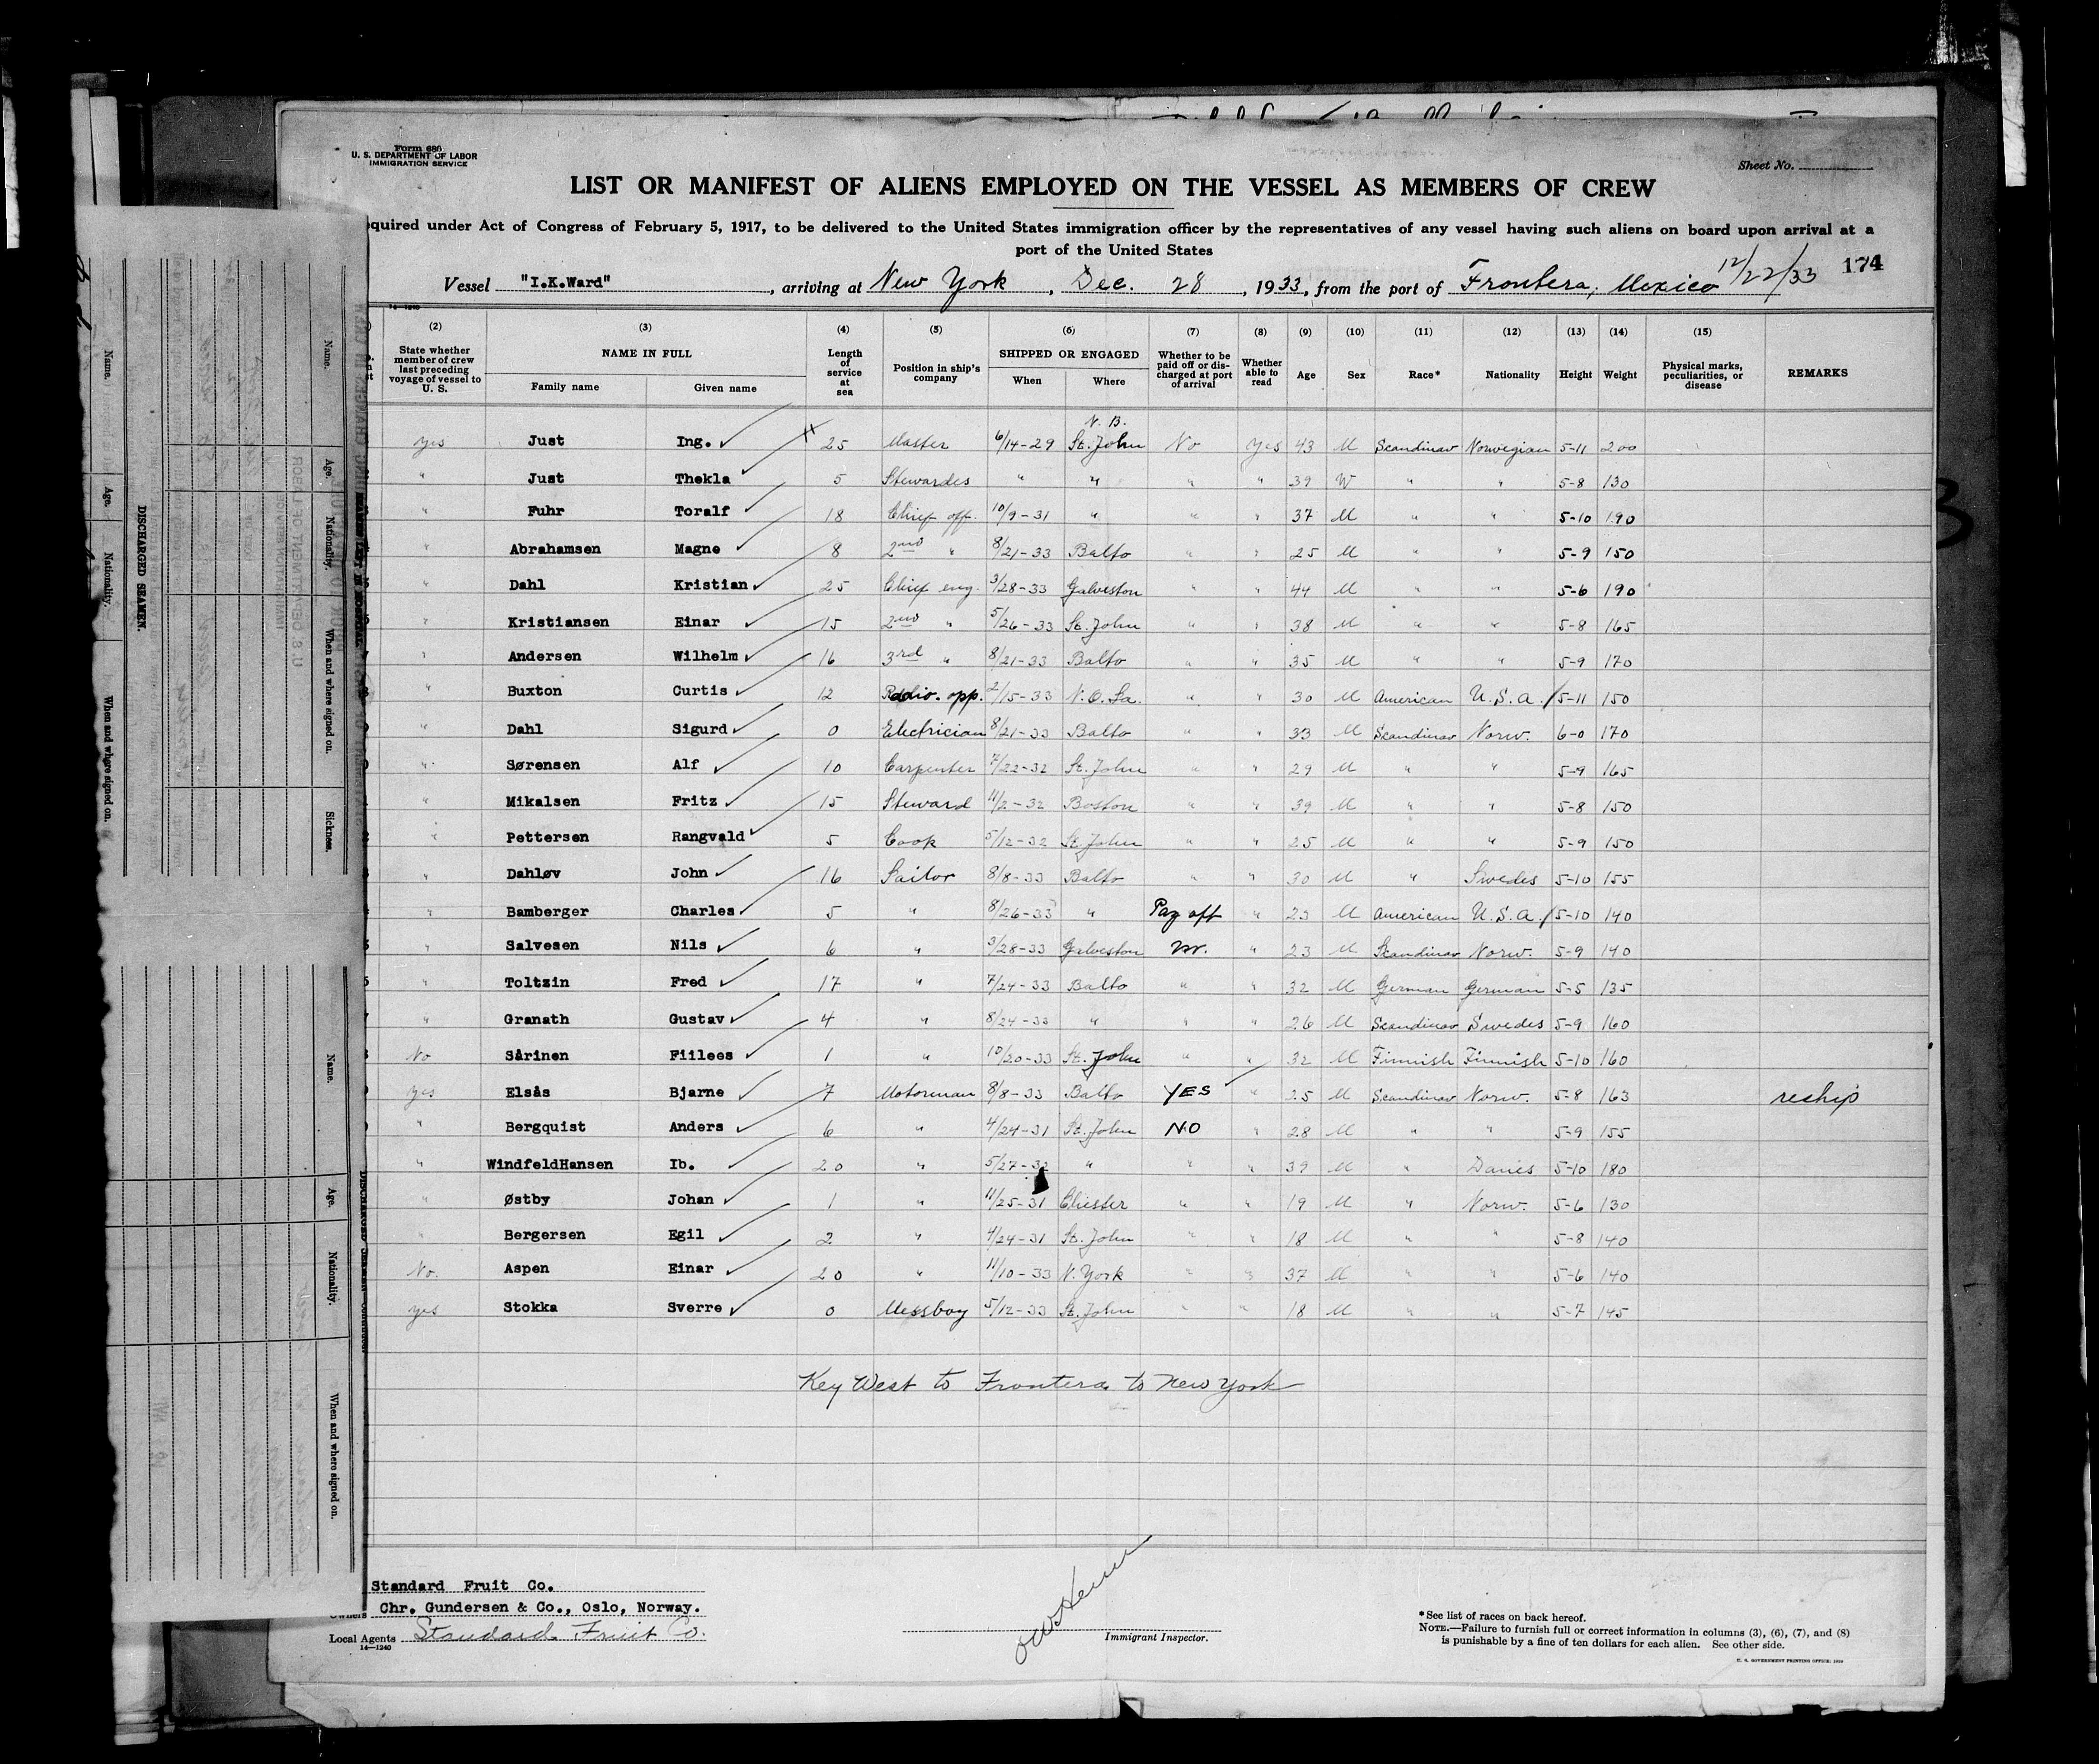 Form 680
U. S. DEPARTMENT OF LABOR
IMMIGRATION SERVICE
Sheet No.
LIST OR MANIFEST OF ALIENS EMPLOYED ON THE VESSEL AS MEMBERS OF CREW
quired under Act of Congress of February 5, 1917, to be delivered to the United States immigration officer by the representatives of any vessel having such aliens on board upon arrival at a
port of the United States
Vessel "I.K.Ward", arriving at New York, Dec. 28, 1933, from the port of Frontera, Mexico 12/22/33 174
(2) (3) (4) (5) (6) (7) (8) (9) (10) (11) (12) (13) (14) (15)
State whether member of crew last preceding voyage of vessel to U. S. NAME IN FULL Family name Given name Length of service at sea Position in ship's company SHIPPED OR ENGAGED When Where Whether to be paid off or discharged at port of arrival Whether able to read Age Sex Race* Nationality Height Weight Physical marks, peculiarities, or disease REMARKS
N. B.
yes Just Ing. 25 Master 6/14-29 St. John No Yes 43 M Scandinav Norwegian 5-11 200
" Just Thekla 5 Stewardes " " " " 39 W " " 5-8 130
" Fuhr Toralf 18 Chief off. 10/9-31 " " " 37 M " " 5-10 190
" Abrahamsen Magne 8 2nd " 8/21-33 Balto " " 25 M " " 5-9 150
" Dahl Kristian 25 Chief eng. 3/28-33 Galveston " " 44 M " " 5-6 190
" Kristiansen Einar 15 2nd " 5/26-33 St. John " " 38 M " " 5-8 165
" Andersen Wilhelm 16 3rd " 8/21-33 Balto " " 35 M " " 5-9 170
" Buxton Curtis 12 Radio. opp. 2/15-33 N.O. La. " " 30 M American U.S.A. 5-11 150
" Dahl Sigurd 0 Electrician 8/21-33 Balto " " 33 M Scandinav Norw. 6-0 170
" Sørensen Alf 10 Carpenter 7/22-32 St. John " " 29 M " " 5-9 165
" Mikalsen Fritz 15 Steward 11/2-32 Boston " " 39 M " " 5-8 150
" Pettersen Rangvald 5 Cook 5/12-32 St. John " " 25 M " " 5-9 150
" Dahløv John 16 Sailor 8/8-33 Balto " " 30 M " Swedes 5-10 155
" Bamberger Charles 5 " 8/26-33 " Pay off " 23 M American U.S.A. 5-10 140
" Salvesen Nils 6 " 3/28-33 Galveston " 23 M Scandinav Norw. 5-9 140
" Toltzin Fred 17 " 7/24-33 Balto " " 32 M German German 5-5 135
" Granath Gustav 4 " 8/24-33 " " " 26 M Scandinav Swedes 5-9 160
No Sårinen Fiilees 1 " 10/20-33 St. John " " 32 M Finnish Finnish 5-10 160
yes Elsås Bjarne 7 Motorman 8/8-33 Balto YES " 25 M Scandinav Norw. 5-8 163 reship
" Bergquist Anders 6 " 4/24-31 St. John NO " 28 M " " 5-9 155
" WindfeldHansen Ib. 20 " 5/27-32 " " " 39 M " Danes 5-10 180
" Østby Johan 1 " 11/25-31 Chester " " 19 M " Norw. 5-6 130
" Bergersen Egil 2 " 4/24-31 St. John " " 18 M " " 5-8 140
No. Aspen Einar 20 " 11/10-33 N. York " " 37 M " " 5-6 140
yes Stokka Sverre 0 Messboy 5/12-33 St. John " " 18 M " " 5-7 145
Key West to Frontera to New York
Standard Fruit Co.
Owners Chr. Gundersen & Co., Oslo, Norway.
Local Agents Standard Fruit Co.
14—1240
Immigrant Inspector.
*See list of races on back hereof.
NOTE.—Failure to furnish full or correct information in columns (3), (6), (7), and (8)
is punishable by a fine of ten dollars for each alien. See other side.
U. S. GOVERNMENT PRINTING OFFICE
DISCHARGED SEAMEN.
Name. Age. Nationality. When and where signed on.
Name. Age. Nationality. When and where signed on. Sickness.
Name. Age. Nationality. When and where signed on.
U. S. DEPARTMENT OF LABOR
IMMIGRATION SERVICE